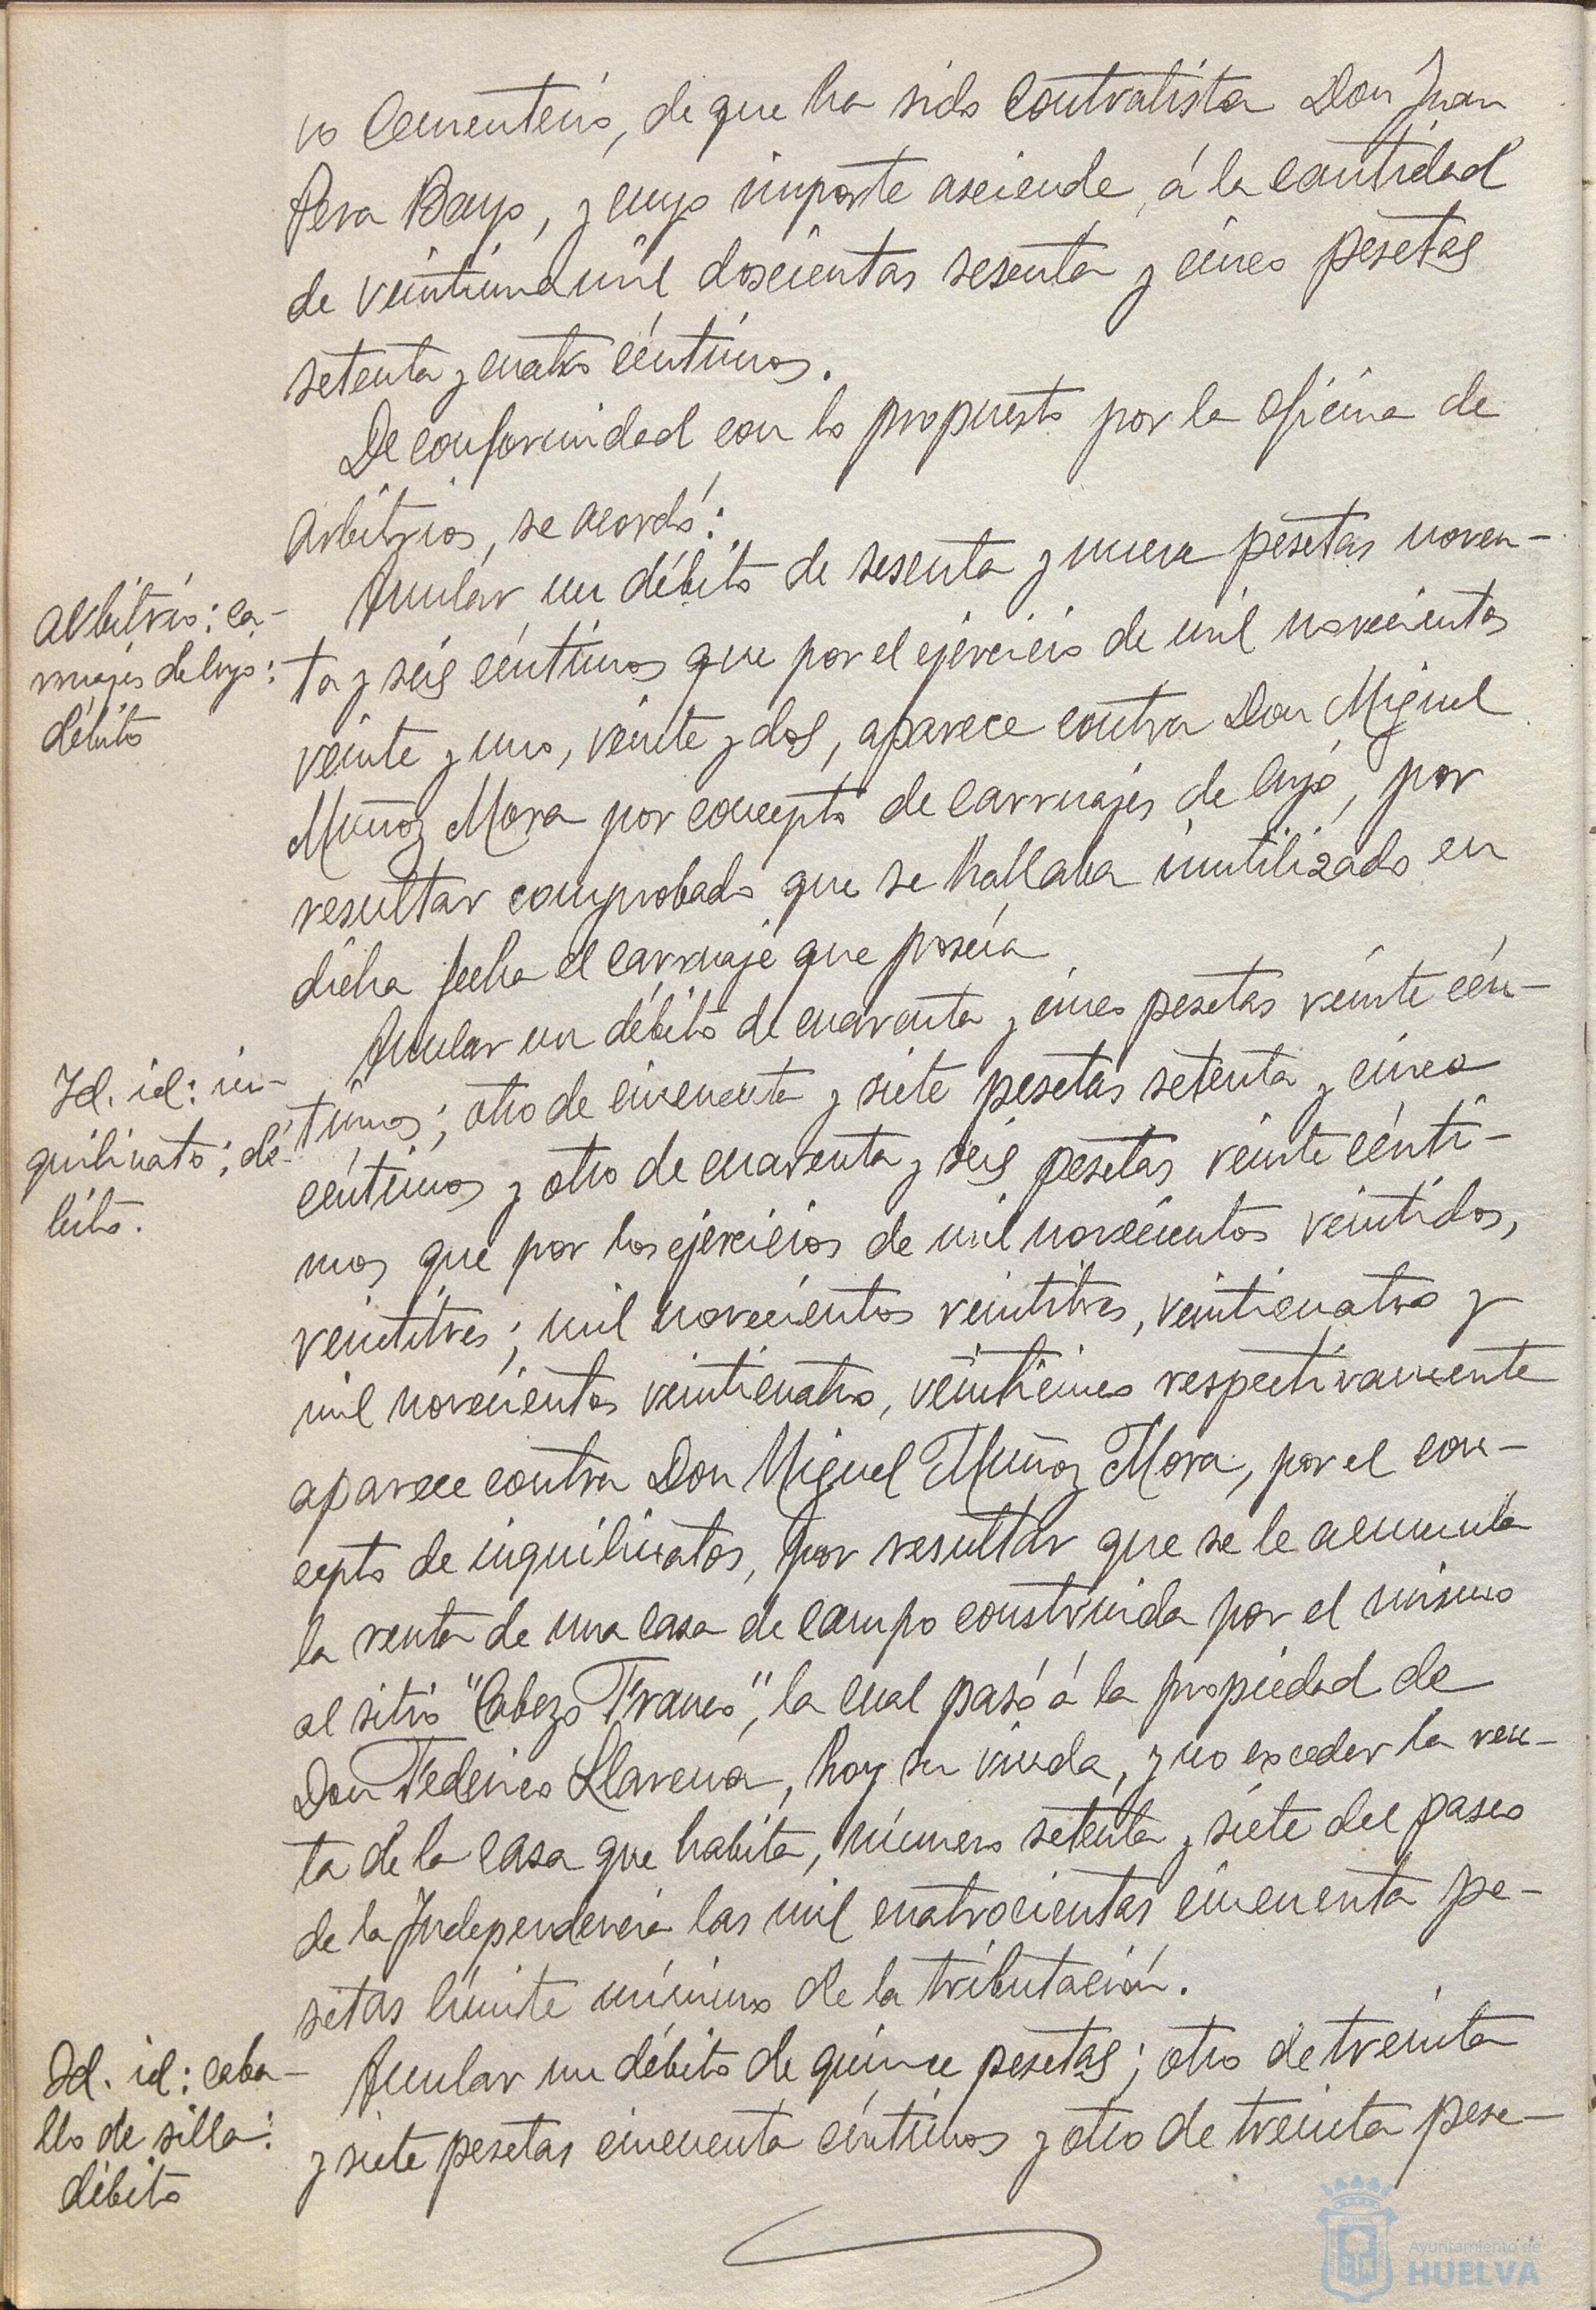 vo Cementerio, de que ha sido contratista Don Juan
Pera Bayo, y cuyo importe asciende á la cantidad
de veintiuna mil doscientas sesenta y cinco pesetas
setenta y cuatro céntimos.
De conformidad con lo propuesto por la oficina de
Arbitrios, se acordó:
Arbitrio: ca-
rruajes de lujo:
débito
Anular un débito de sesenta y nueve pesetas noven-
ta y seis céntimos que por el ejercicio de mil novecientos
veinte y uno, veinte y dos, aparece contra Don Miguel
Muñoz Mora por concepto de carruajes de lujo, por
resultar comprobado que se hallaba inutilizado en
dicha fecha el carruaje que poseía
Id. id: in-
quilinato; dé-
bito.
Anular un débito de cuarenta y cinco pesetas veinte cén-
timos; otro de cincuenta y siete pesetas setenta y cinco
céntimos y otro de cuarenta y seis pesetas veinte cénti-
mos que por los ejercicios de mil novecientos veintidos,
veintitres; mil novecientos veintitres, veinticuatro y
mil novecientos veinticuatro, veinticinco respectivamente
aparece contra Don Miguel Muñoz Mora, por el con-
cepto de inquilinatos, por resultar que se le acumula
la renta de una casa de campo construida por el mismo
al sitio "Cabezo Franco", la cual pasó á la propiedad de
Don Federico Llarena, hoy su viuda, y no exceder la ren-
ta de la casa que habita, número setenta y siete del paseo
de la Independencia las mil cuatrocientas cincuenta pe-
setas límite mínimo de la tributación.
Id. id: caba-
llo de silla:
débito
Anular un débito de quince pesetas; otro de treinta
y siete pesetas cincuenta céntimos y otro de treinta pese-
Ayuntamiento de
HUELVA